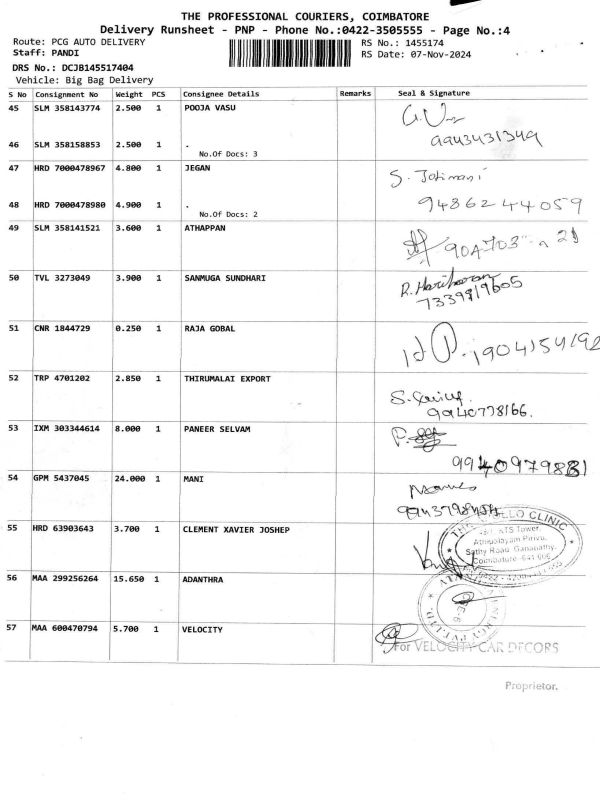 THE PROFESSIONAL COURIERS, COIMBATORE
Delivery Runsheet - PNP - Phone No.:0422-3505555 - Page No.:4
Route: PCG AUTO DELIVERY
RS No.: 1455174
Staff: PANDI
RS Date: 07-Nov-2024
DRS No.: DCJB145517404
Vehicle: Big Bag Delivery
S No Consignment No Weight PCS Consignee Details Remarks Seal & Signature
45 SLM 358143774 2.500 1 POOJA VASU
9943431349
46 SLM 358158853 2.500 1 .
No.Of Docs: 3
47 HRD 7000478967 4.800 1 JEGAN
S. Jotimani
48 HRD 7000478980 4.900 1 .
9486244059
No.Of Docs: 2
49 SLM 358141521 3.600 1 ATHAPPAN
50 TVL 3273049 3.900 1 SANMUGA SUNDHARI
R. Hariharan
51 CNR 1844729 0.250 1 RAJA GOBAL
52 TRP 4701202 2.850 1 THIRUMALAI EXPORT
9940778166.
53 IXM 303344614 8.000 1 PANEER SELVAM
54 GPM 5437045 24.000 1 MANI
55 HRD 63903643 3.700 1 CLEMENT XAVIER JOSHEP
CLINIC
KTS Tower,
Athipalayam Pirivu,
Sathy Road, Ganapathy,
Coimbatore -641 006.
56 MAA 299256264 15.650 1 ADANTHRA
57 MAA 600470794 5.700 1 VELOCITY
For VELOCITY CAR DECORS
Proprietor.